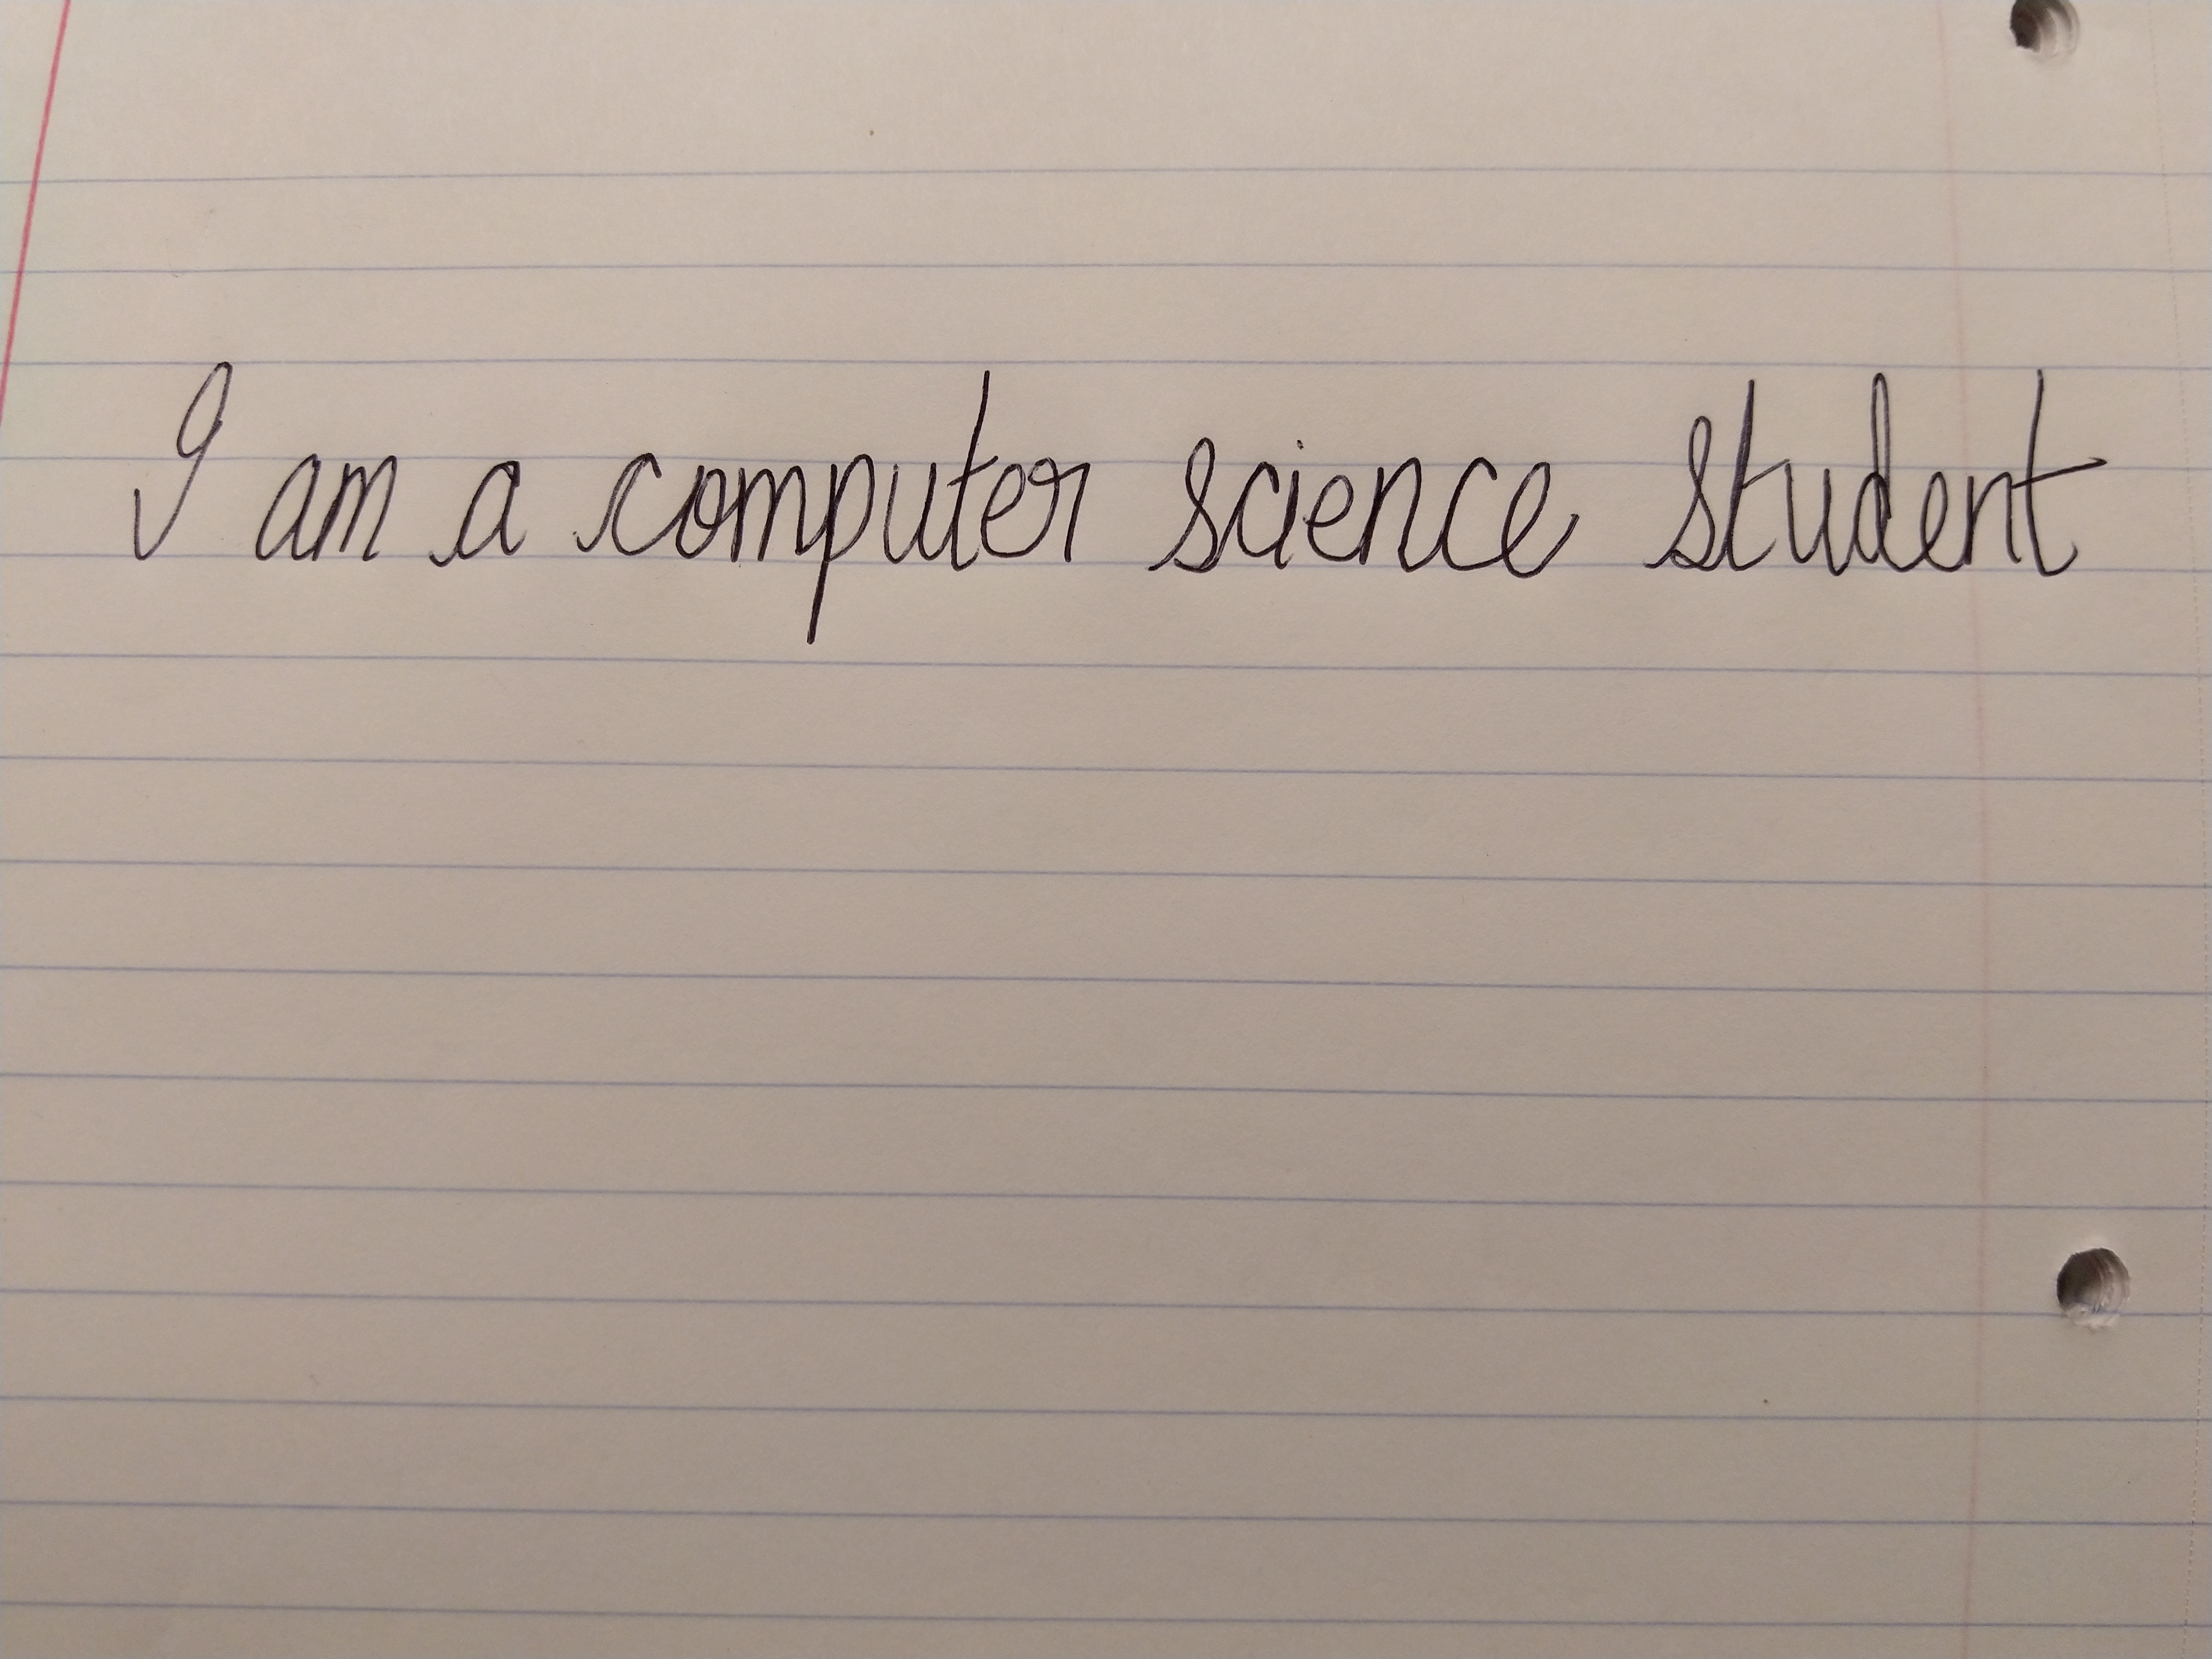 I am a computer science student